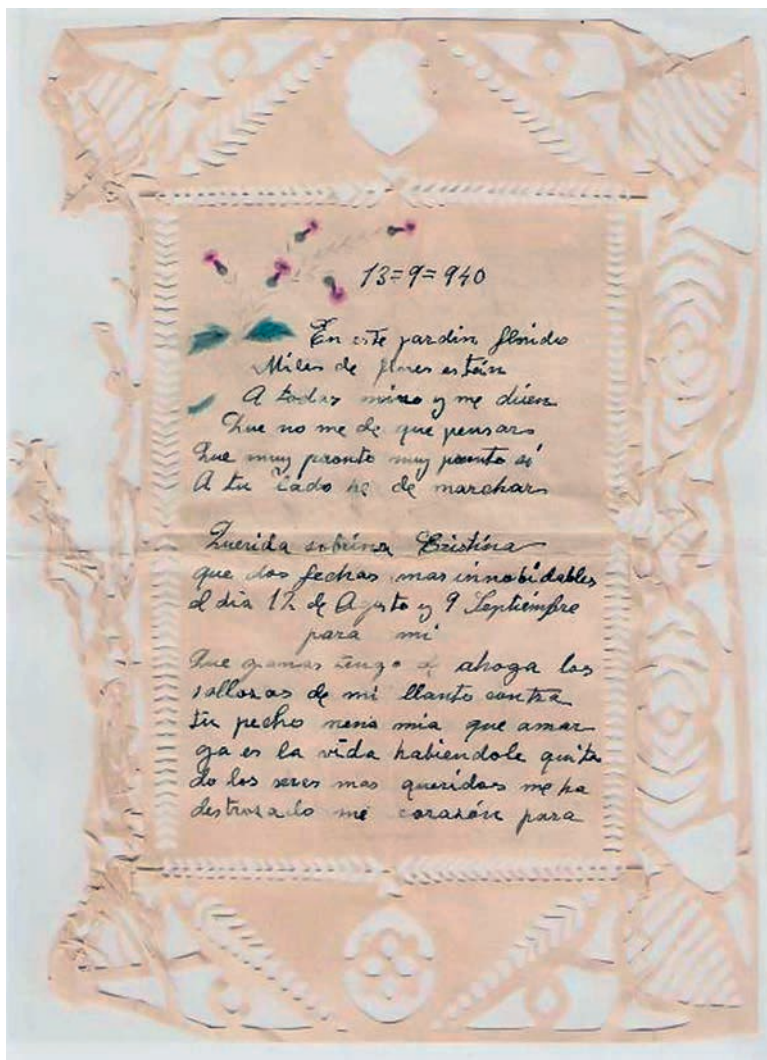 13=9=940
En este jardin florido
Miles de flores están
A todas miro y me dicen
Que no me de que pensar
Que muy pronto muy pronto si
A tu lado he de marchar
Querida sobrina Cristina
que dos fechas mas innobidables
el dia 12 de Agosto y 9 Septiémbre
para mi
Que ganas tengo d ahoga los
sollosos de mi llanto contra
tu pecho nena mia que amar
ga es la vida habiendole quita
do los seres mas queridos me ha
destrosado mi corasón para